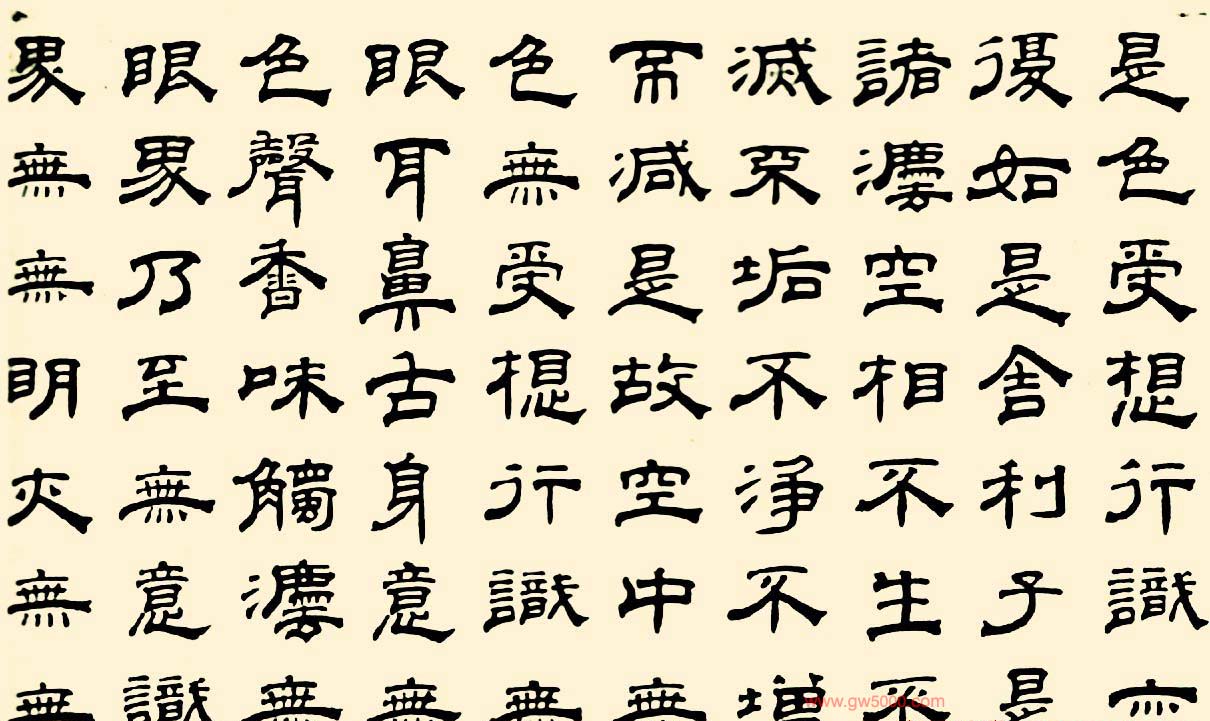 是色受想行識亦
復如是舍利子是
諸灋空相不生不
滅不垢不淨不增
不減是故空中無
色無受想行識無
眼耳鼻舌身意無
色聲香味觸灋無
眼界乃至無意識
界無無明亦無無
www.gw5000.com